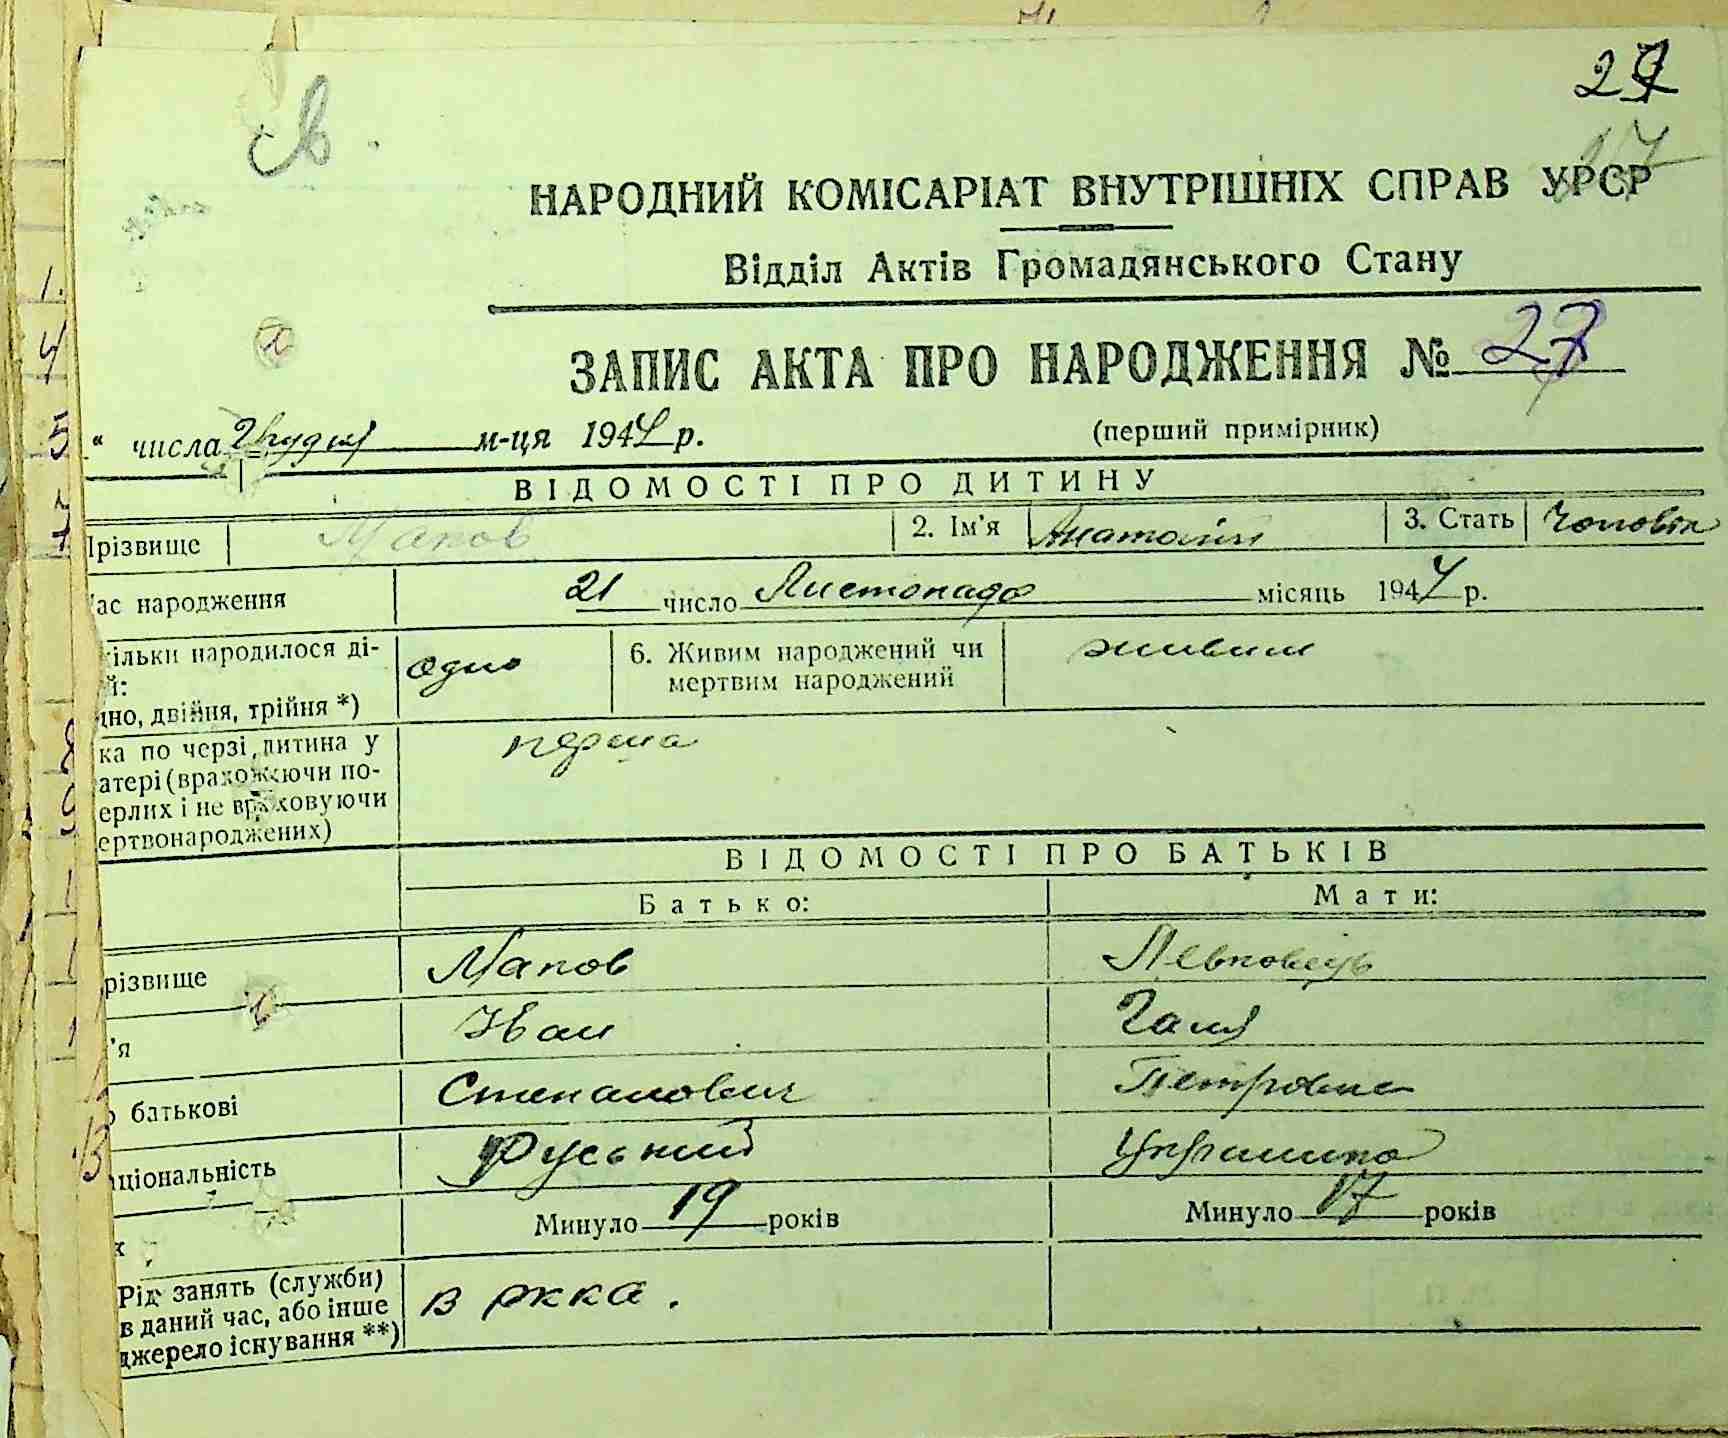 27
17
НАРОДНИЙ КОМІСАРІАТ ВНУТРІШНІХ СПРАВ УРСР
Відділ Актів Громадянського Стану
ЗАПИС АКТА ПРО НАРОДЖЕННЯ № 27
“ числа Грудня м-ця 1944 р. (перший примірник)
ВІДОМОСТІ ПРО ДИТИНУ
Прізвище Мапов 2. Ім'я Анатолій 3. Стать Чоловік
ас народження 21 число Листопада місяць 1944 р.
кільки народилося ді-
й:
дно, двійня, трійня *) одно 6. Живим народжений чи
мертвим народжений живим
ка по черзі дитина у перша
атері (враховуючи по-
ерлих і не враховуючи
ертвонароджених)
ВІДОМОСТІ ПРО БАТЬКІВ
Батько: Мати:
різвище Мапов
'я Іван Галя
о батькові Степанович Петровна
аціональність Руський Українка
к Минуло 19 років Минуло 17 років
Рід занять (служби)
в даний час, або інше
джерело існування **) в ркка.